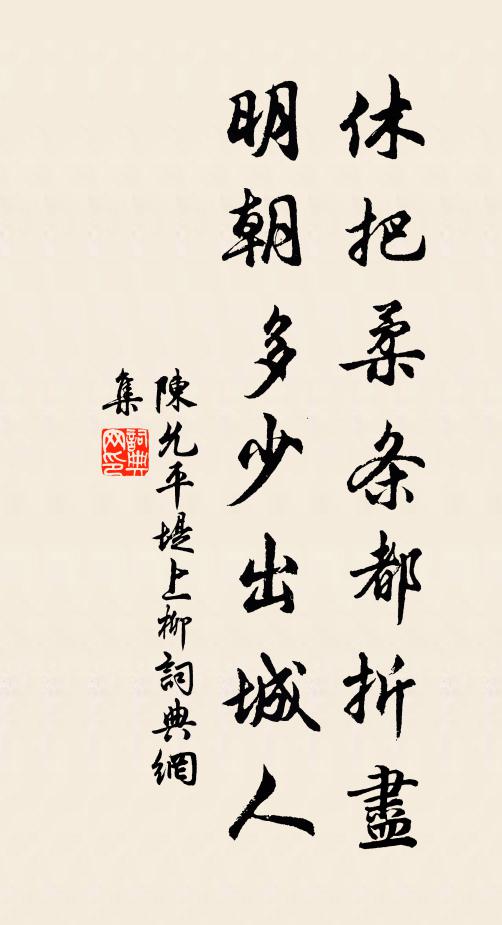 休把柔条都折盡
明朝多少出城人
陳允平堤上柳詞典網
集
詞典
网印